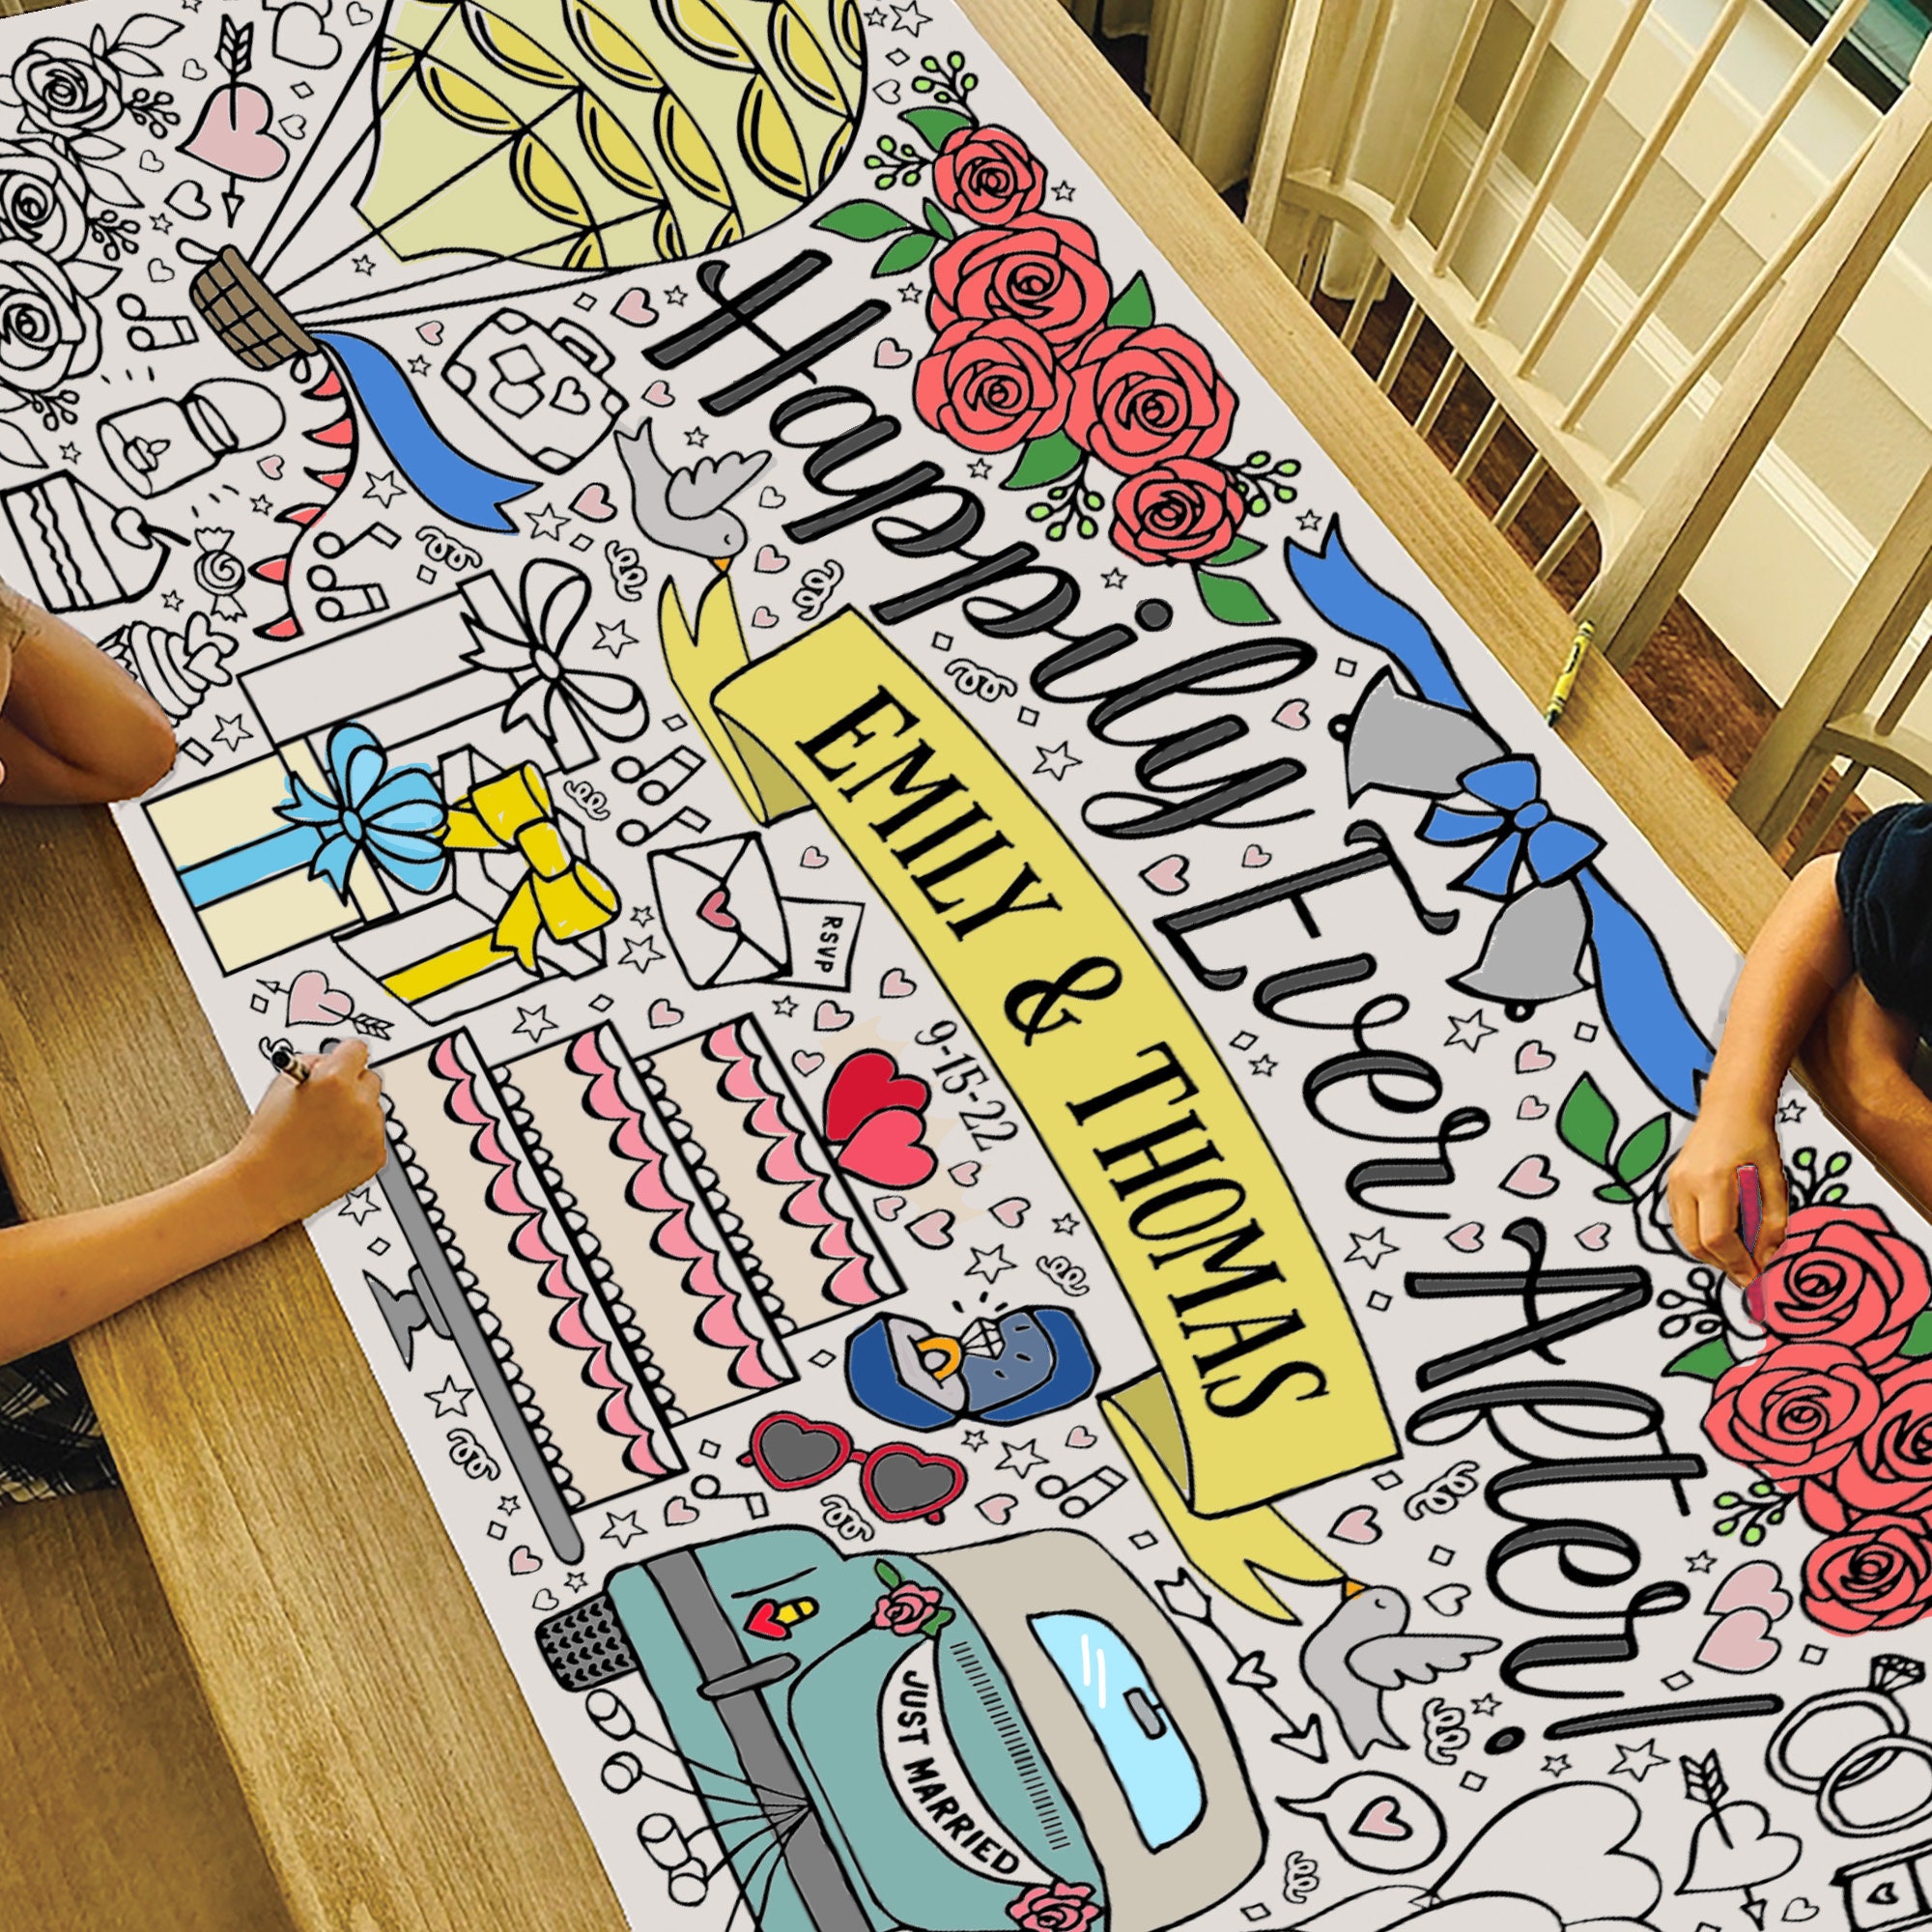 Happily Ever After!
EMILY & THOMAS
9-15-22
RSVP
JUST MARRIED